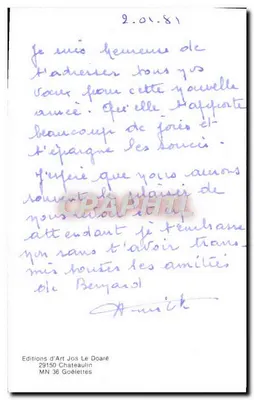 2.01.81
Je suis heureuse de
t'adresser tous nos
vœux pour cette nouvelle
année. Qu'elle t'apporte
beaucoup de joies et
t'épargne les soucis.
J'espère que nous aurons
souvent le plaisir de
nous
attendant je t'embrasse
non sans t'avoir trans-
mis toutes les amitiés
de Bernard
Annick
Editions d'Art Jos Le Doaré
29150 Chateaulin
MN 36 Goëlettes